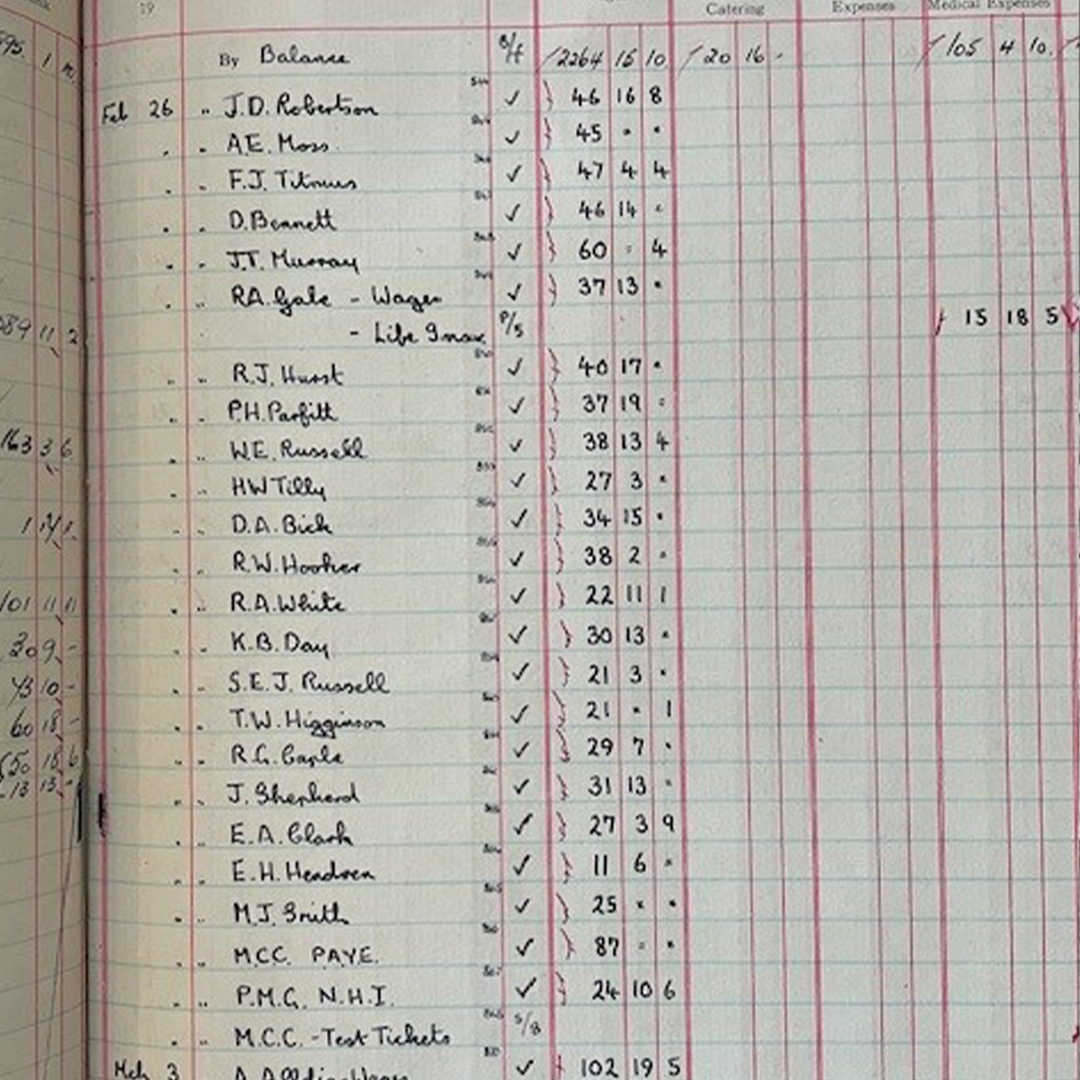 19 Catering Expenses Medical Expenses
By Balance B/f 2264 15 10 20 16 - 105 4 10
Feb 26 " J.D. Robertson ✓ 46 16 8
" " A.E. Moss ✓ 45 " "
" " F.J. Titmus ✓ 47 4 4
" " D. Bennett ✓ 46 14 "
" " J.T. Murray ✓ 60 " 4
" " R.A. Gale - Wages ✓ 37 13 "
- Life Insce P/S 15 18 5
" " R.J. Hurst ✓ 40 17 "
" " P.H. Parfitt ✓ 37 19 "
" " W.E. Russell ✓ 38 13 4
" " H W Tilly ✓ 27 3 "
" " D.A. Bick ✓ 34 15 "
" " R.W. Hooker ✓ 38 2 "
" " R.A. White ✓ 22 11 1
" " K.B. Day ✓ 30 13 "
" " S.E.J. Russell ✓ 21 3 "
" " T.W. Higginson ✓ 21 " 1
" " R.G. Caple ✓ 29 7 "
" " J. Shepherd ✓ 31 13 "
" " E.A. Clark ✓ 27 3 9
" " E.H. Hendren ✓ 11 6 "
" " M.J. Smith ✓ 25 " "
" " M.C.C. PAYE. ✓ 87 " "
" " P.M.G. N.H.I. ✓ 24 10 6
" " M.C.C. - Test Tickets S/8
Mch 3 ✓ 102 19 5